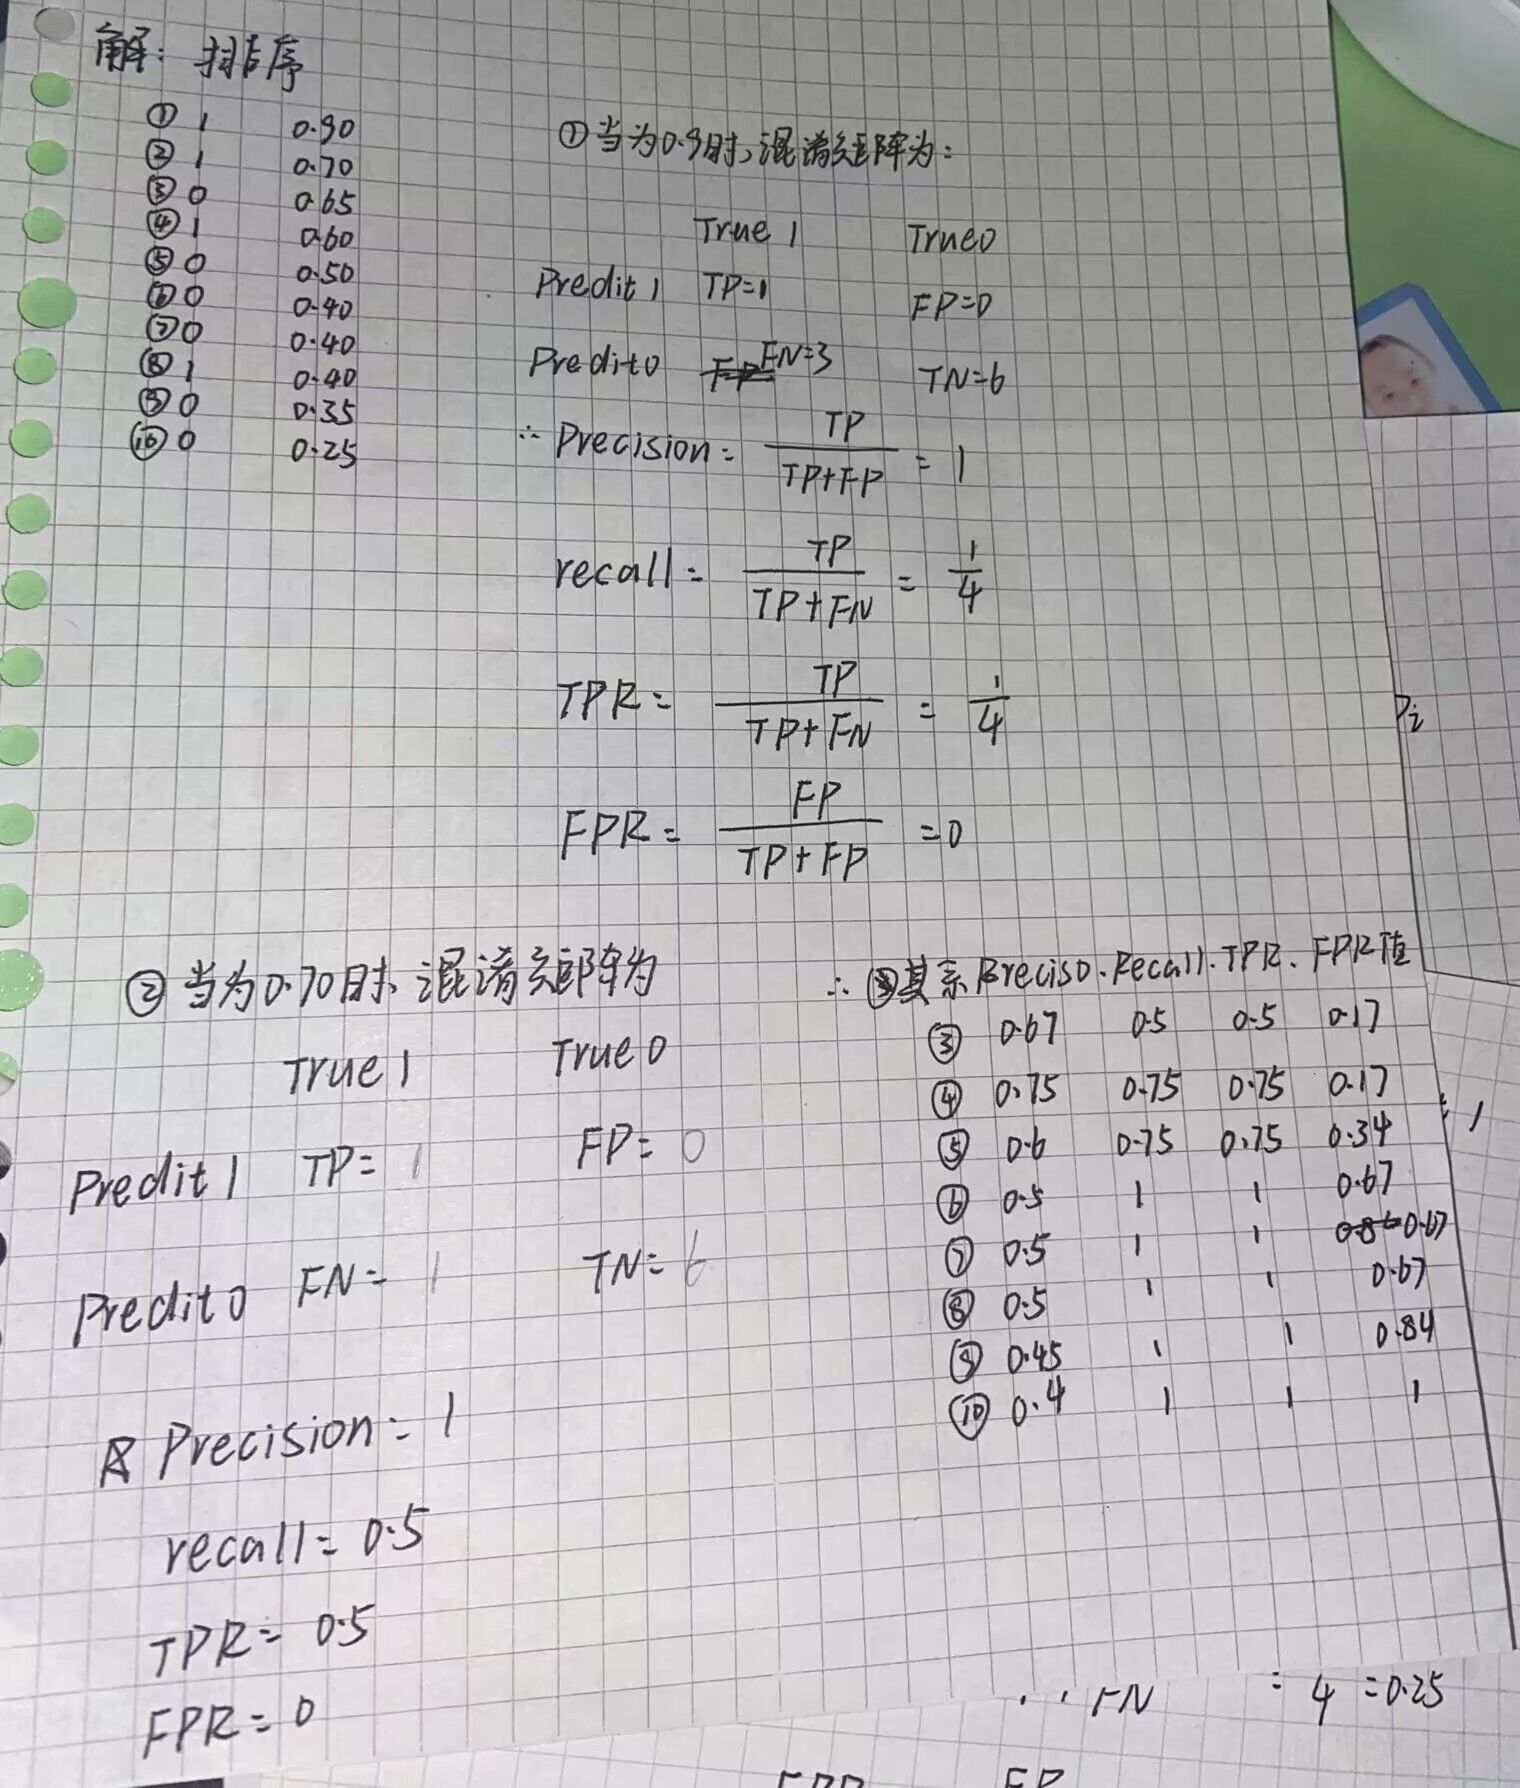 解: 排序
① 1 0.90
② 1 0.70
③ 0 0.65
④ 1 0.60
⑤ 0 0.50
⑥ 0 0.40
⑦ 0 0.40
⑧ 1 0.40
⑨ 0 0.35
⑩ 0 0.25
①当为0.9时,混淆矩阵为:
True 1 True0
Predit 1 TP=1 FP=0
Predito FN=3 TN=6
∴ Precision= TP/TP+FP = 1
recall= TP/TP+FN = 1/4
TPR= TP/TP+FN = 1/4
FPR= FP/TP+FP =0
②当为0.70时、混淆矩阵为
True 1 True 0
Predit 1 TP= 1 FP= 0
Predito FN= 1 TN= 6
Precision= 1
recall= 0.5
TPR= 0.5
FPR= 0
∴ 其余Preciso.Recall.TPR.FPR值
③ 0.67 0.5 0.5 0.17
④ 0.75 0.75 0.75 0.17
⑤ 0.6 0.75 0.75 0.34
⑥ 0.5 1 1 0.67
⑦ 0.5 1 1 0.67
⑧ 0.5 1 1 0.67
⑨ 0.45 1 1 0.84
⑩ 0.4 1 1 1
FN = 4 =0.25
FP